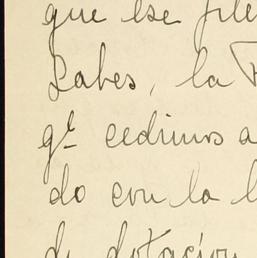 que ese
Labes, la
qᵉ cedimos a
do con la l
de dotación